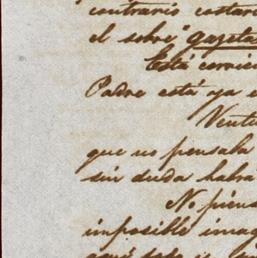 contrario costar
el sobre "gazeta
Está corrie
Padre está ya e
Venti
que no pensaba
sin duda habra
No piens
imposible imag